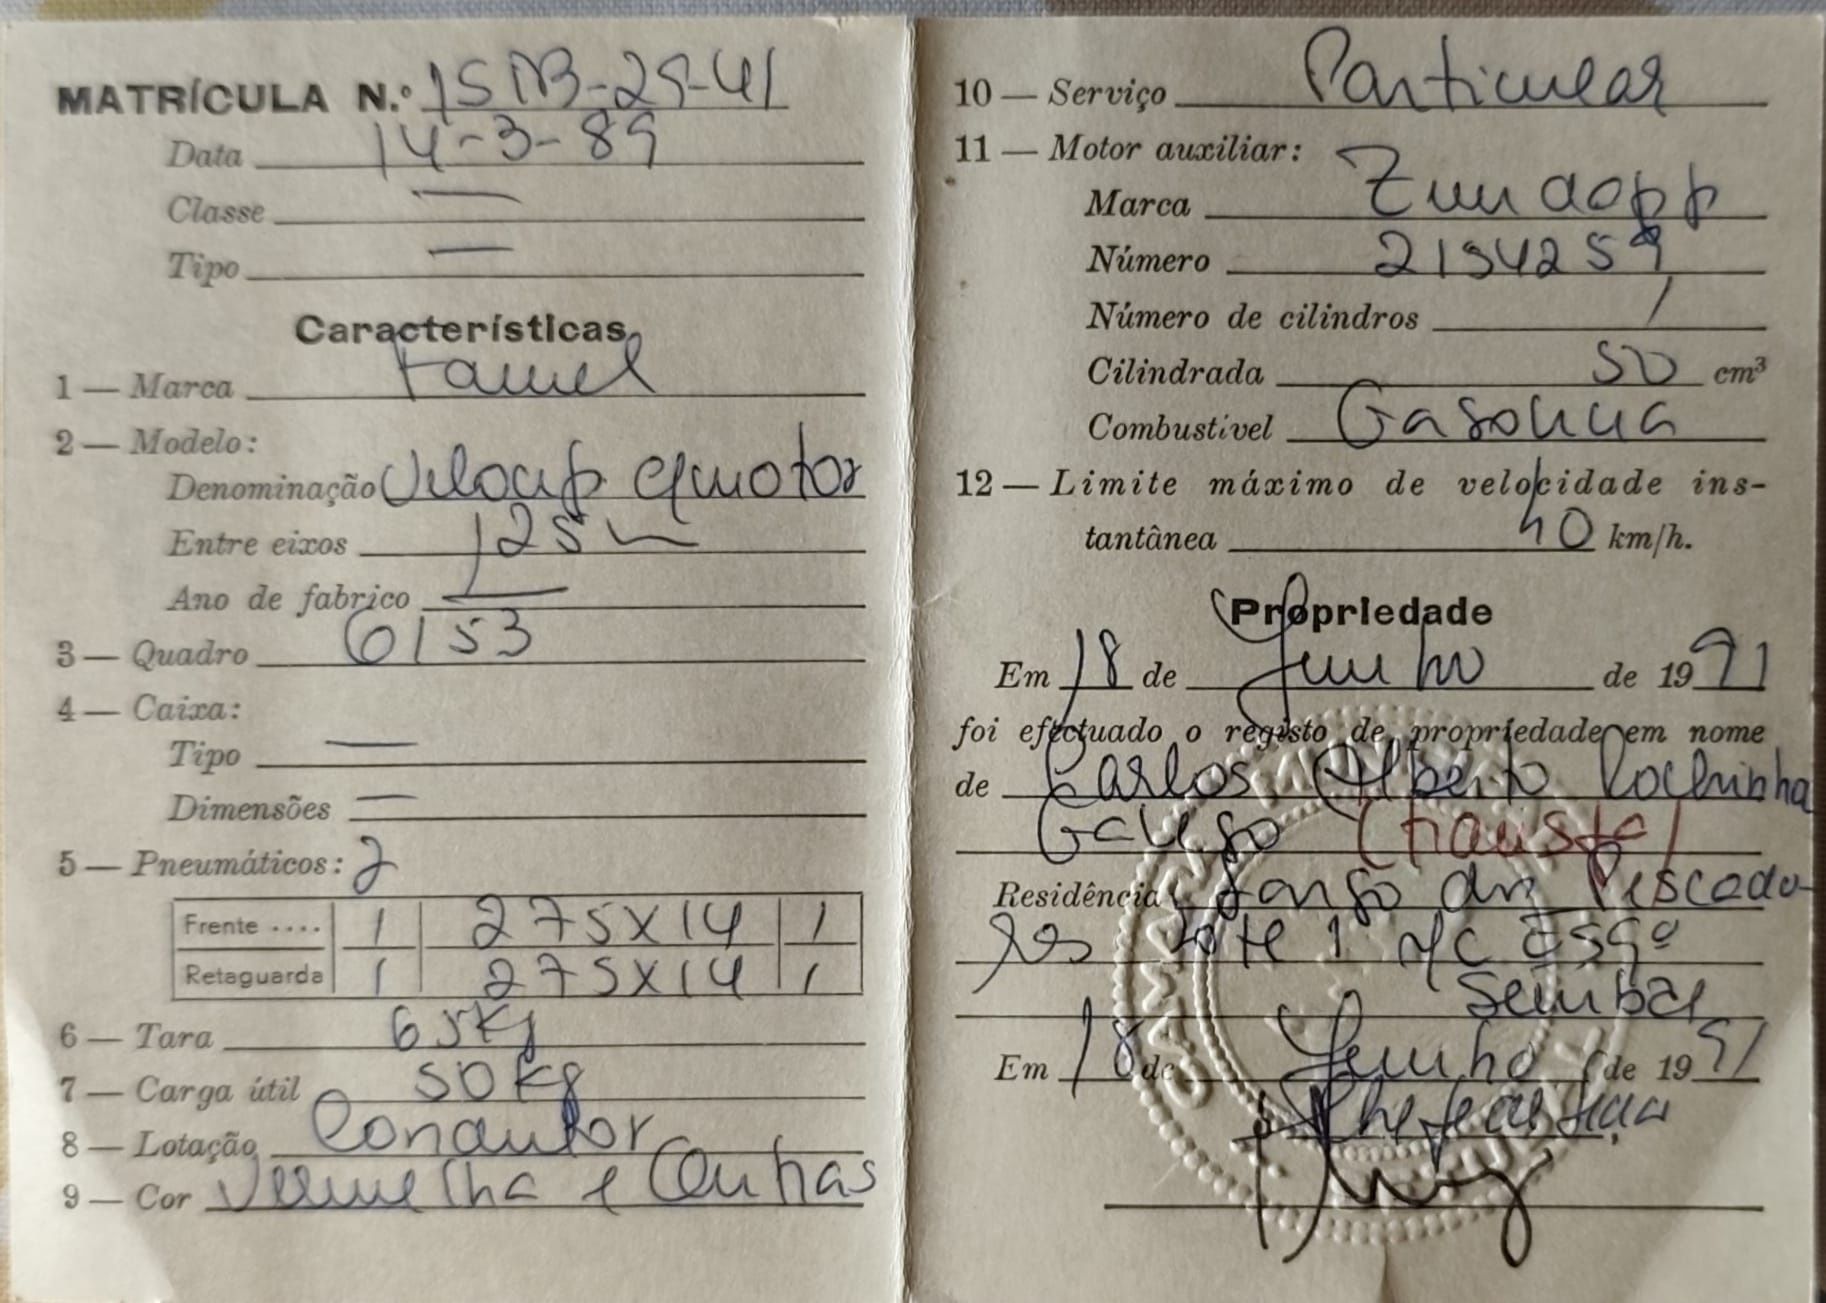 MATRÍCULA N.º 1SMB-29-41
Data 14-3-89
Classe —
Tipo —
Características
1 — Marca Famel
2 — Modelo:
Denominação Velocip c/motor
Entre eixos 125
Ano de fabrico —
3 — Quadro 6153
4 — Caixa:
Tipo —
Dimensões —
5 — Pneumáticos: 2
Frente .... 1 275X14 1
Retaguarda 1 275X14 1
6 — Tara 65Kg
7 — Carga útil 50Kg
8 — Lotação Condutor
9 — Cor Vermelha e Outras
10 — Serviço Particular
11 — Motor auxiliar:
Marca Zundapp
Número 2194259
Número de cilindros 1
Cilindrada 50 cm³
Combustível Gasolina
12 — Limite máximo de velocidade ins-
tantânea 40 km/h.
Propriedade
Em 18 de Junho de 1991
foi efectuado o registo de propriedade em nome
de Carlos Alberto Rochinha
Galego
Residência Largo dos Pescado-
res lote 1 r/c Esqº
Em 18 de Junho de 1991